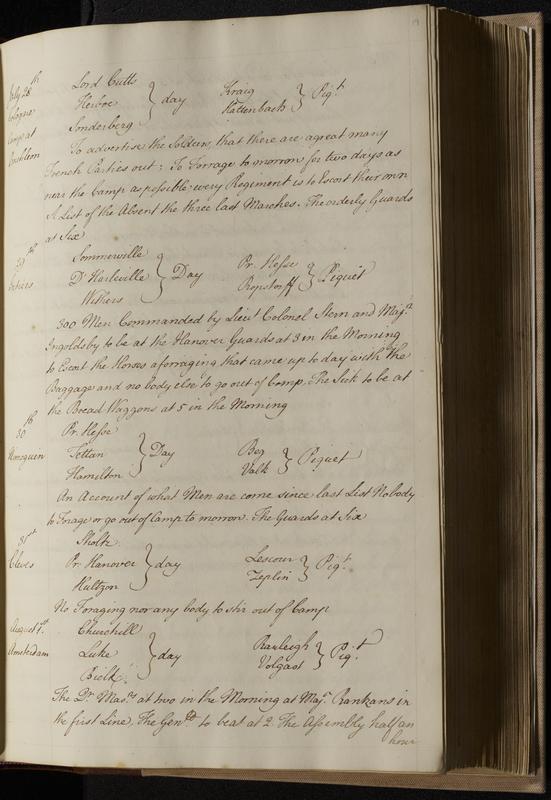 July 28th Lord Cutts
Cologne Herbor } day Kraig } Piqt.
Camp at Sonderberg Hattenbach
To advertise the Soldiers, that there are a great many
French Parties out; To Forrage to morrow for two days as
near the Camp as possible every Regiment is to Escort their own
A List of the Absent the three last Marches. The orderly Guards
at Six
29th Sommerville
D'Harleville } Day Pr. Hesse } Piquet
Withers Ropstorff
300 Men Commanded by Lieut Colonel Stern and Majr.
Ingoldsby to be at the Hanover Guards at 3 in the Morning
to Escort the Horses a forraging that came up to day with the
Baggage and no body else to go out of Camp. The Sick to be at
the Bread Waggons at 5 in the Morning
30th Pr. Hesse
Nimeguen Tettau } Day Berg } Piquet
Hamilton Valk
An Account of what Men are come since last List Nobody
to Forage or go out of Camp to morrow. The Guards at Six
31st Sholtz
Cleves Pr. Hanover } day Lescour } Piqt.
Hultzon Zeplin
No Foraging nor any body to stir out of Camp
August 1st. Churchill
Amsterdam Luke } day Rawleigh } Piqt.
Bielk Volgast
The Dr. Majrs. at two in the Morning at Majr. Rankans in
the first Line, The Genll. to beat at 2. The Assembly half an
hour